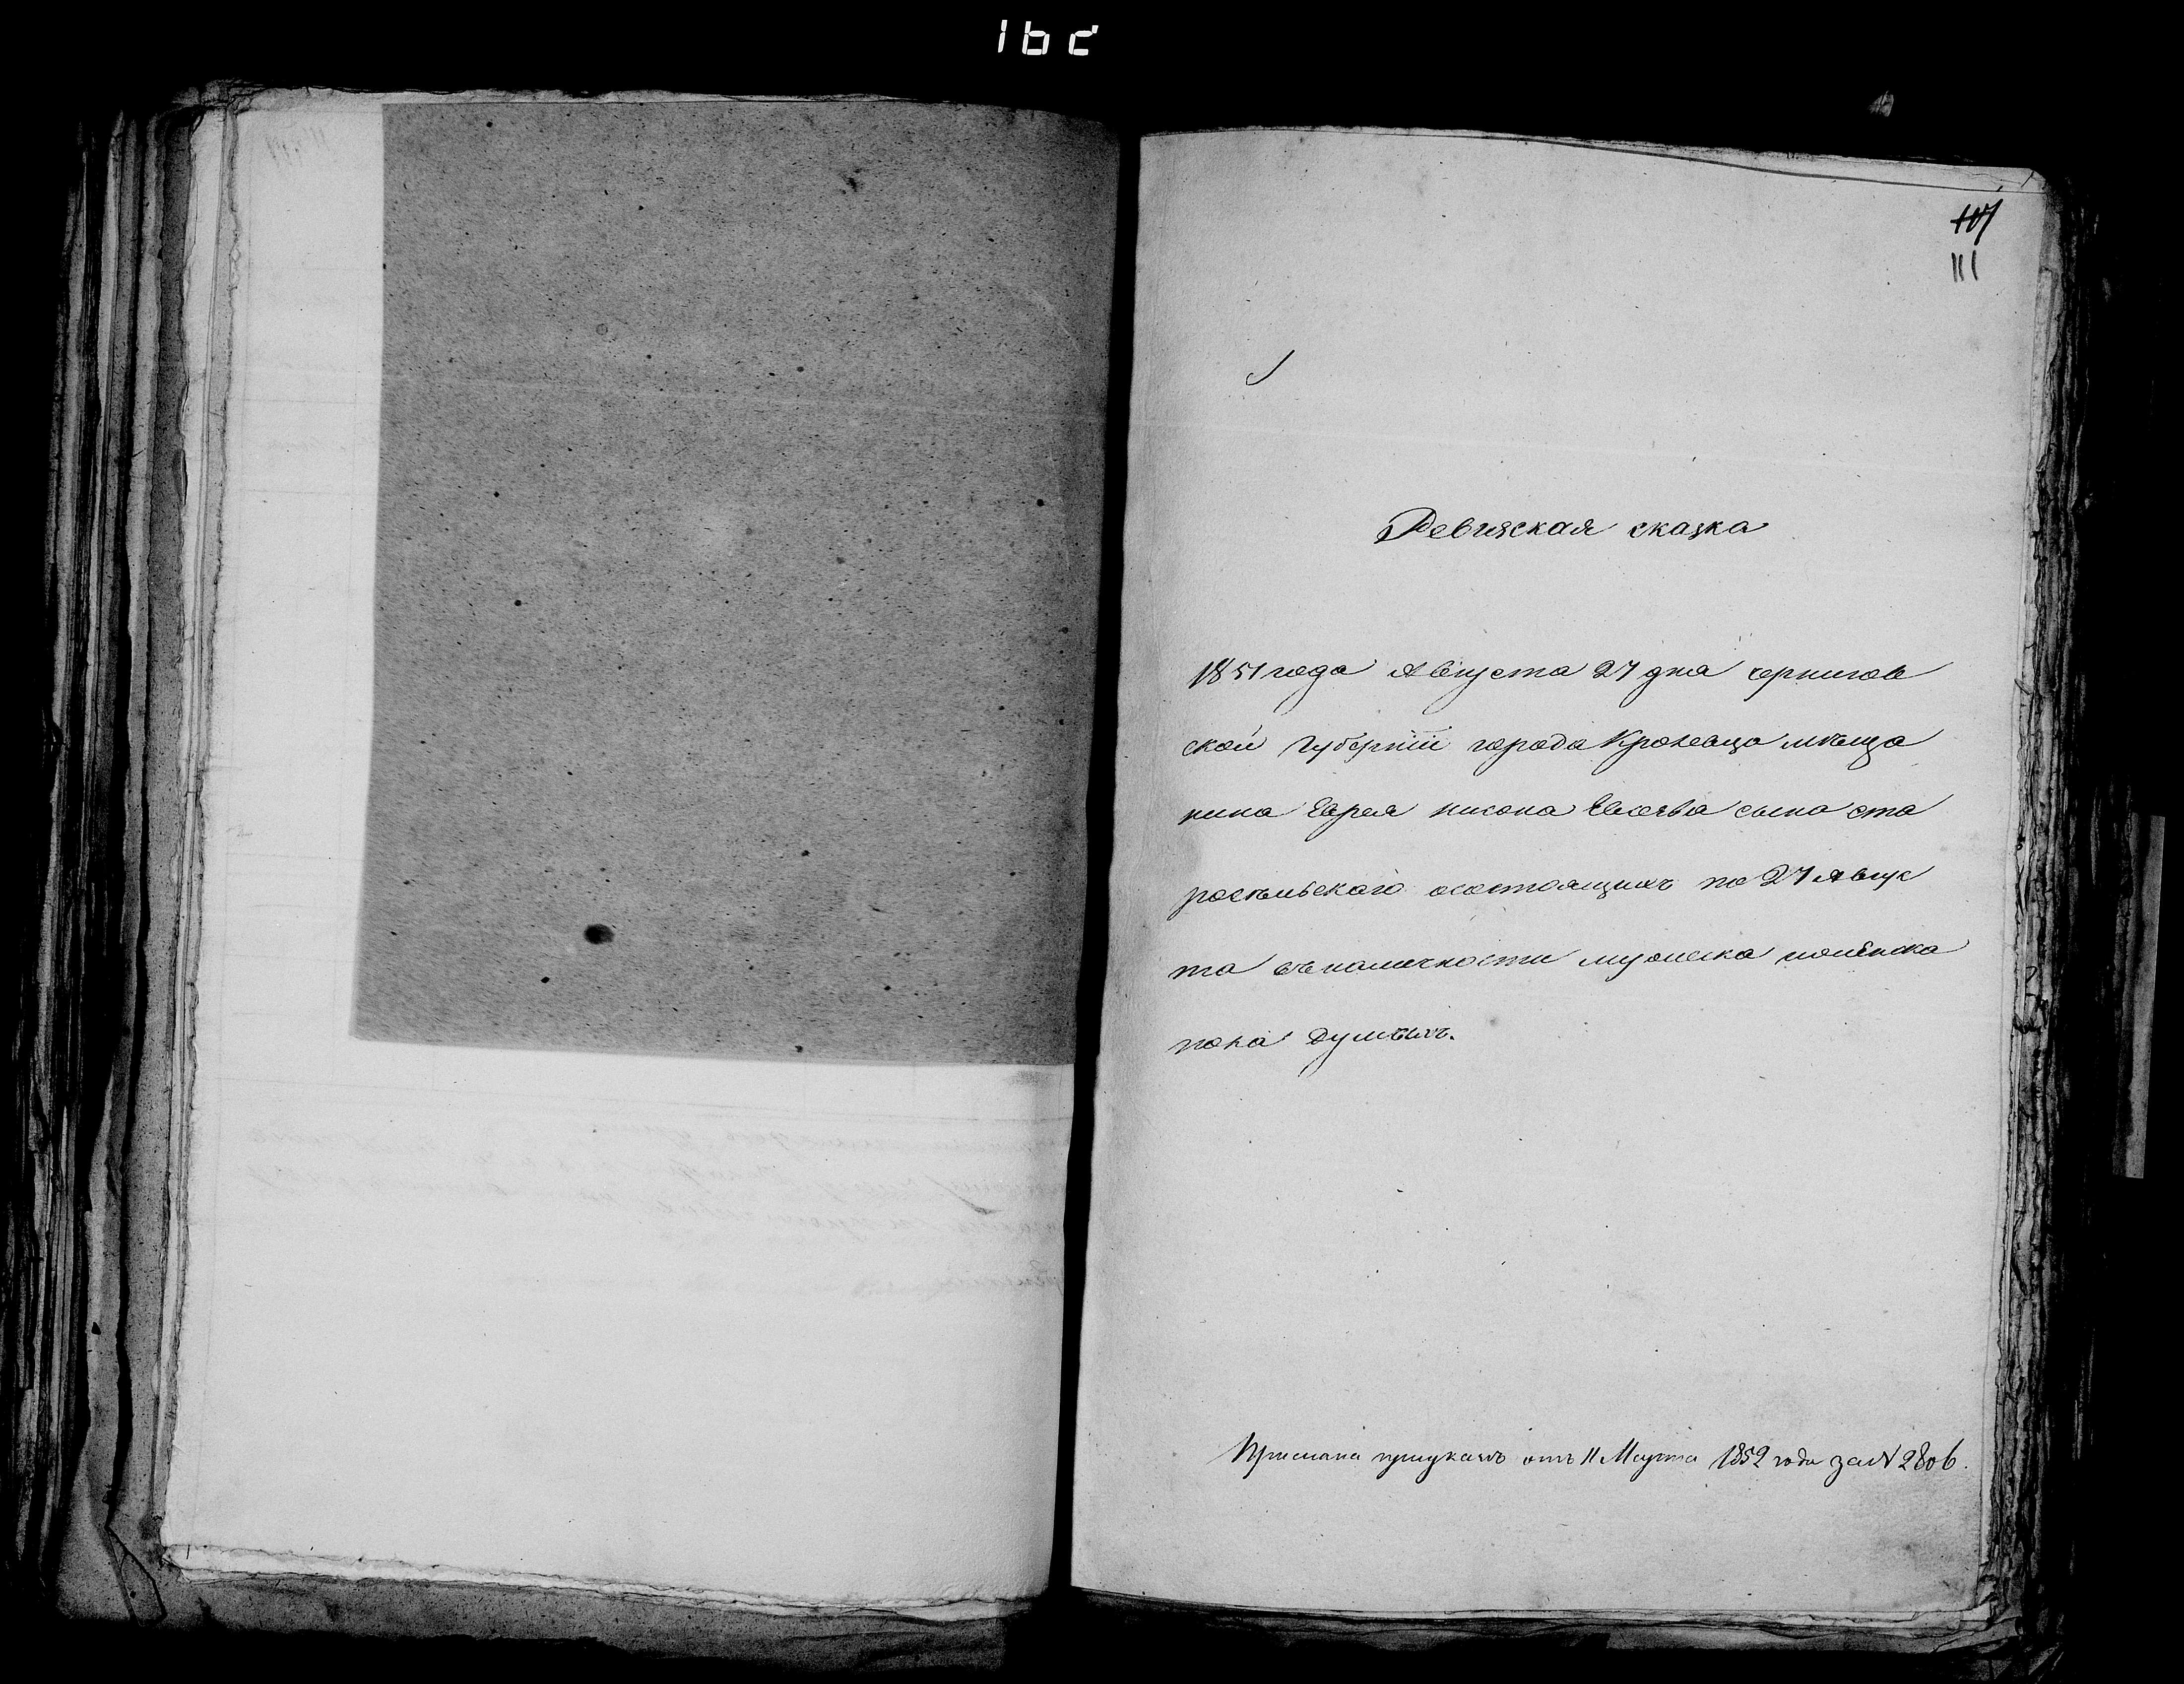 107
111
Ревизская сказка
1851 года Августа 27 дня чернигов
ской губерніи города Кролевца мѣща
нина Еврея нисона сына ста
росѣльскаго осостоящихъ по 27 Авгус
та въ наличности мужеска и женска
пола Душъ
Прислана приуказѣ отъ 11 Марта 1852 года за N 2806.